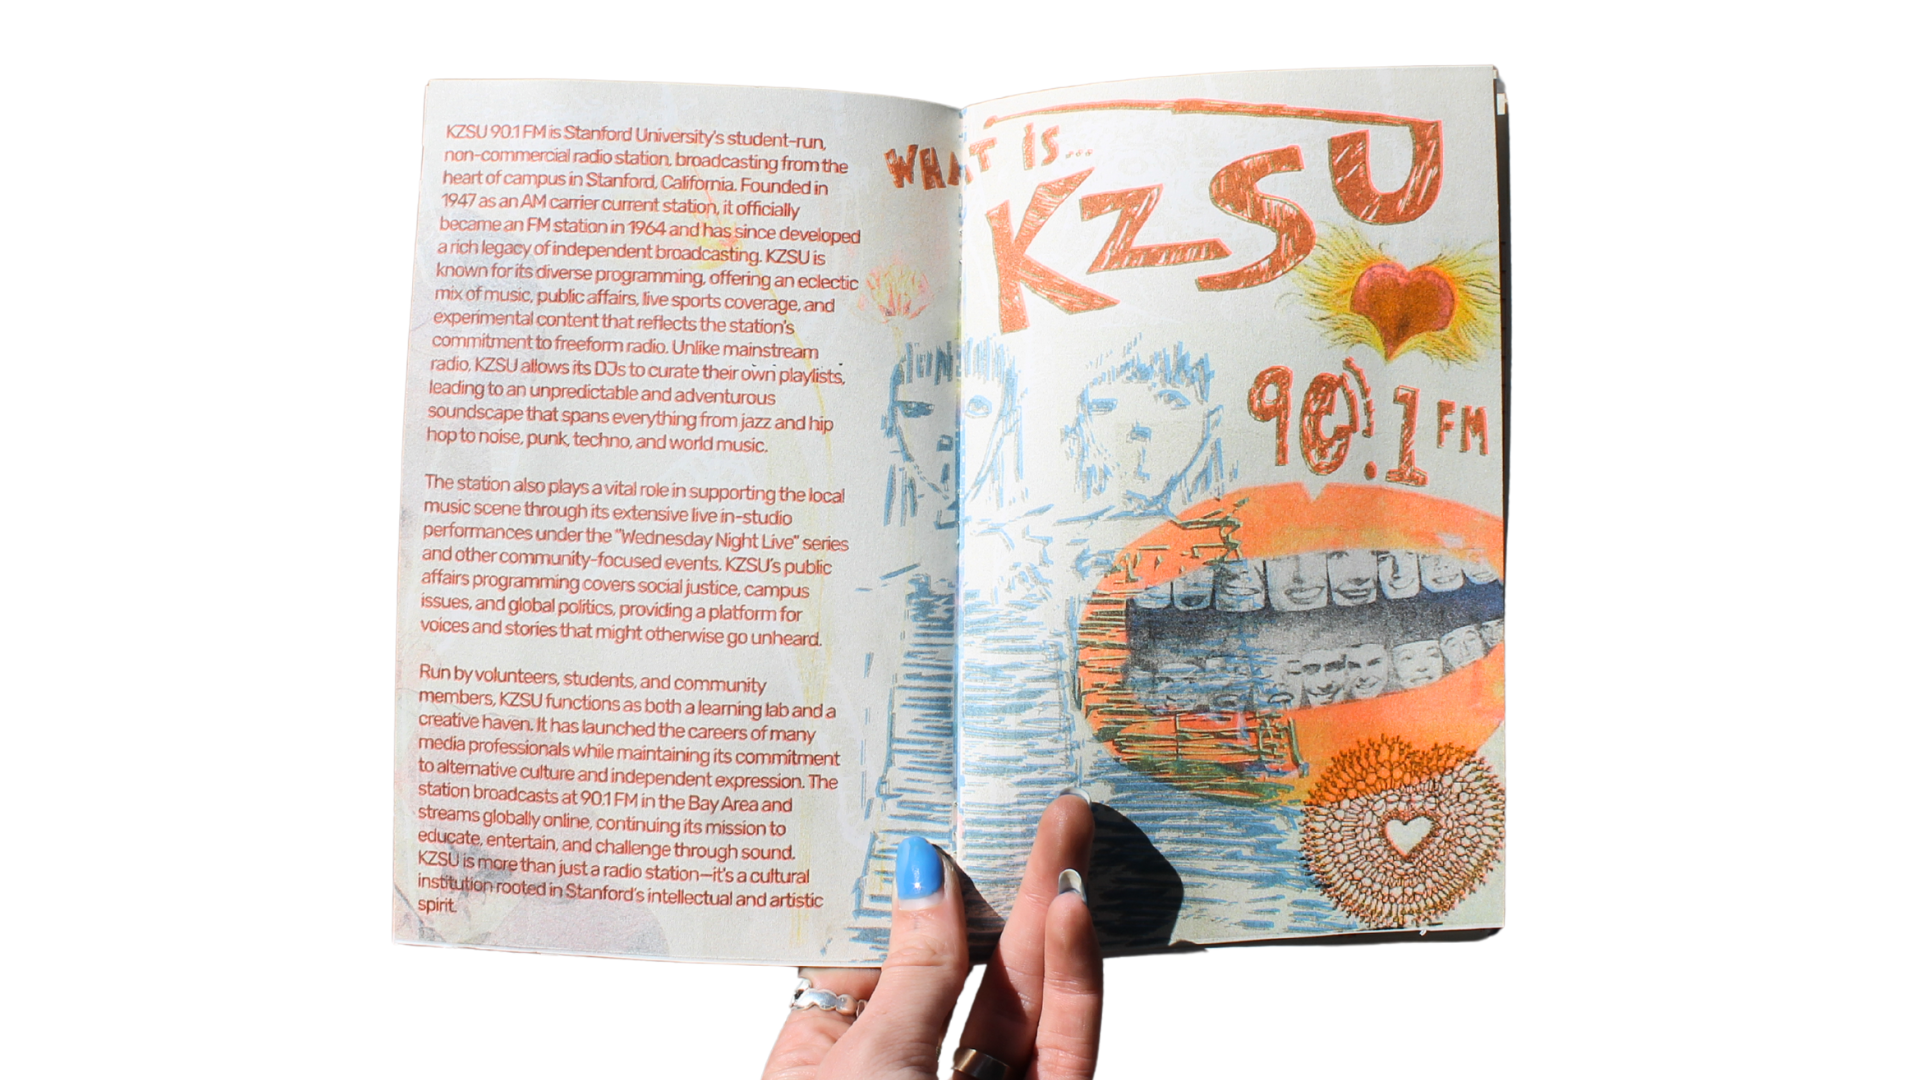 KZSU 90.1 FM is Stanford University's student-run,
non-commercial radio station, broadcasting from the
heart of campus in Stanford, California. Founded in
1947 as an AM carrier current station, it officially
became an FM station in 1964 and has since developed
a rich legacy of independent broadcasting. KZSU is
known for its diverse programming, offering an eclectic
mix of music, public affairs, live sports coverage, and
experimental content that reflects the station's
commitment to freeform radio. Unlike mainstream
radio, KZSU allows its DJs to curate their own playlists,
leading to an unpredictable and adventurous
soundscape that spans everything from jazz and hip
hop to noise, punk, techno, and world music.
The station also plays a vital role in supporting the local
music scene through its extensive live in-studio
performances under the "Wednesday Night Live" series
and other community-focused events. KZSU's public
affairs programming covers social justice, campus
issues, and global politics, providing a platform for
voices and stories that might otherwise go unheard.
Run by volunteers, students, and community
members, KZSU functions as both a learning lab and a
creative haven. It has launched the careers of many
media professionals while maintaining its commitment
to alternative culture and independent expression. The
station broadcasts at 90.1 FM in the Bay Area and
streams globally online, continuing its mission to
educate, entertain, and challenge through sound.
KZSU is more than just a radio station—it's a cultural
institution rooted in Stanford's intellectual and artistic
spirit.
WHAT IS...
KZSU
90.1 FM